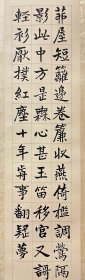 茆屋短籬邊卷簾收燕倚檻調鶯隔
影此中方是心甚玉笛移宮又
輕衫厭撲紅塵十年事翻疑夢